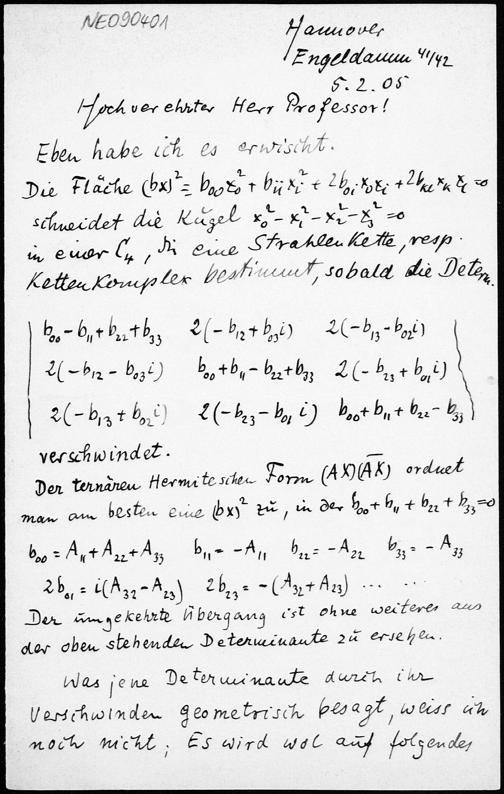 NE090401
Hannover
Engeldamm 41/42
5.2.05
Hochverehrter Herr Professor!
Eben habe ich es erwischt.
Die Fläche (bx)² = b₀₀x₀² + bᵢᵢxᵢ² + 2b₀ᵢx₀xᵢ + 2bₖₗxₖxₗ = 0
schneidet die Kugel x₀² - x₁² - x₂² - x₃² = 0
in einer C₄, die eine Strahlenkette, resp.
Kettenkomplex bestimmt, sobald die Determ.
b₀₀ - b₁₁ + b₂₂ + b₃₃ 2(-b₁₂ + b₀₃i) 2(-b₁₃ - b₀₂i)
2(-b₁₂ - b₀₃i) b₀₀ + b₁₁ - b₂₂ + b₃₃ 2(-b₂₃ + b₀₁i)
2(-b₁₃ + b₀₂i) 2(-b₂₃ - b₀₁i) b₀₀ + b₁₁ + b₂₂ - b₃₃
verschwindet.
Der ternären Hermiteschen Form (AX)(A̅X̅) ordnet
man am besten eine (bx)² zu, in der b₀₀ + b₁₁ + b₂₂ + b₃₃ = 0
b₀₀ = A₁₁ + A₂₂ + A₃₃ b₁₁ = -A₁₁ b₂₂ = -A₂₂ b₃₃ = -A₃₃
2b₀₁ = i(A₃₂ - A₂₃) 2b₂₃ = -(A₃₂ + A₂₃) ... ...
Der umgekehrte Übergang ist ohne weiteres aus
der oben stehenden Determinante zu ersehen.
Was jene Determinante durch ihr
Verschwinden geometrisch besagt, weiss ich
noch nicht; Es wird wol auf folgendes